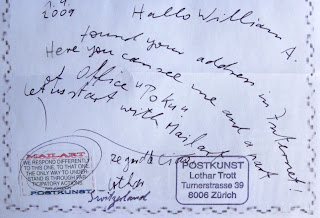 1.4.
2009
Hallo William A.
found your address in Internet!
Here you can see me and a part
of Office "Poku"
let us start with Mailart
regards Ciao
Lothar
Switzerland
MAIL-ART
WE RESPOND DIFFERENTLY
TO THIS ONE, TO THAT ONE.
THE ONLY WAY TO UNDER
STAND IS THROUGH PARTI
CIPATORY ACTIONS
POSTKUNST
POSTKUNST
Lothar Trott
Turnerstrasse 39
8006 Zürich